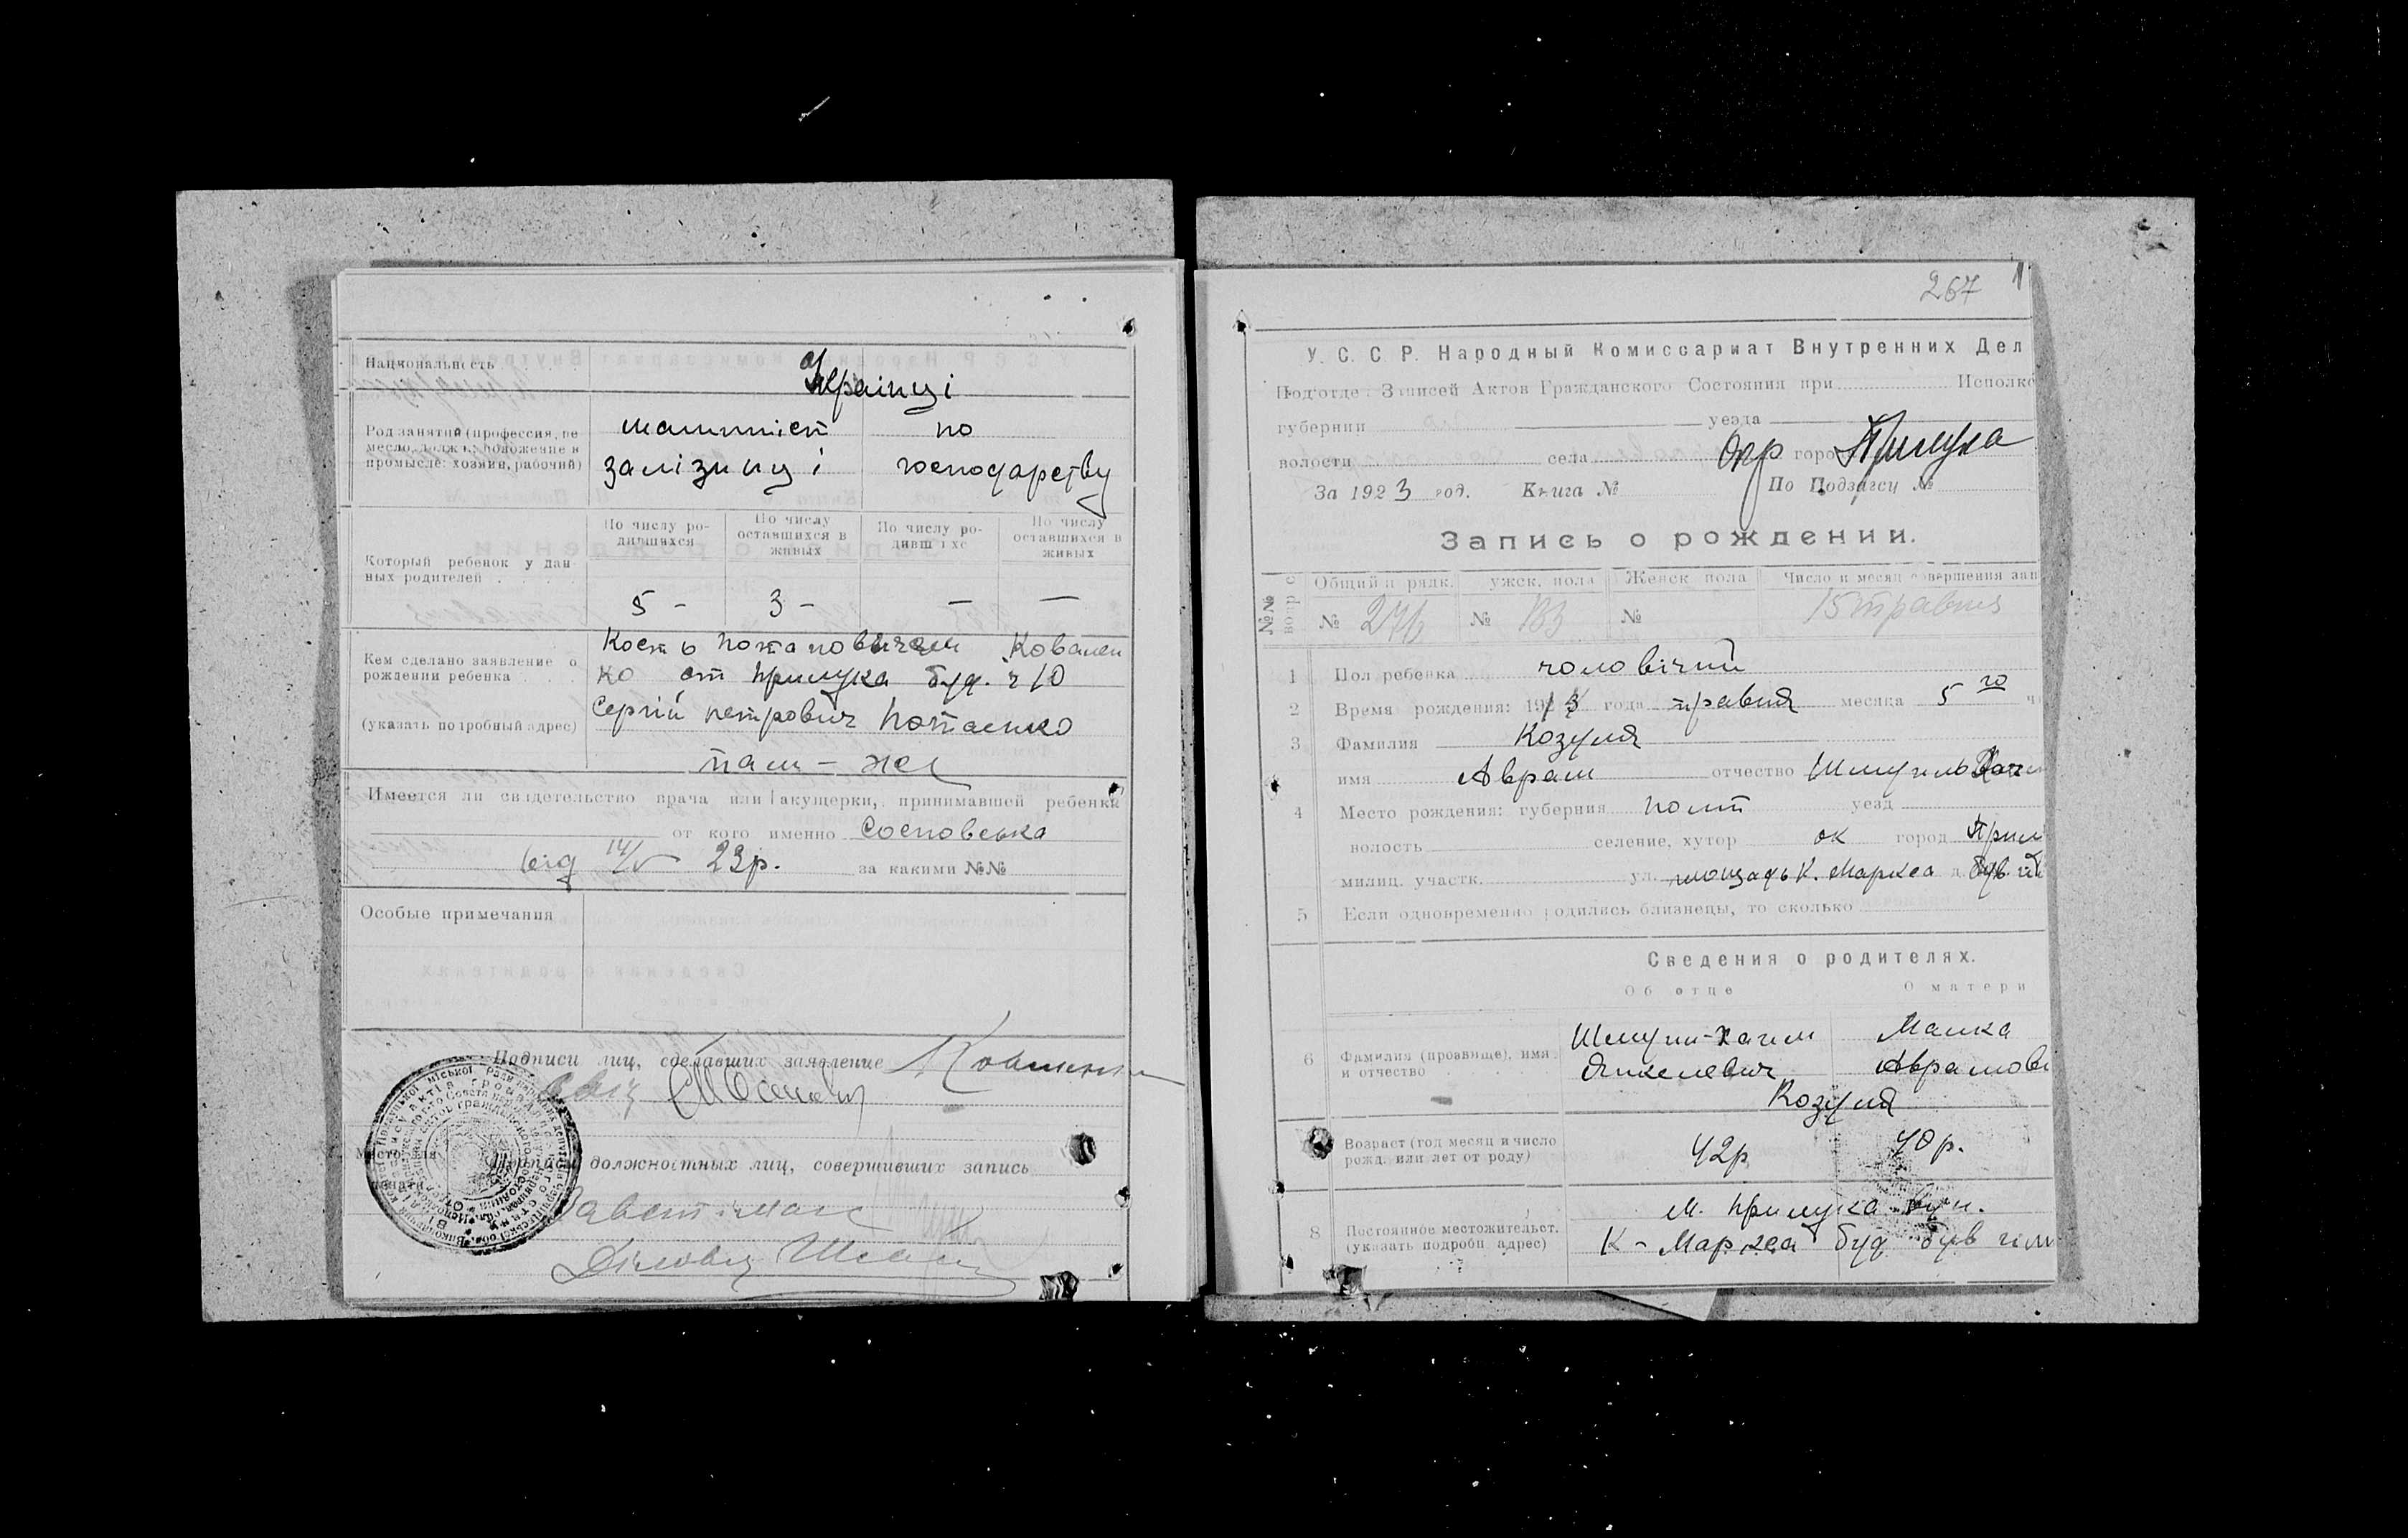 Национальность
Українці
Род занятий (профессия, ре
месло, должн. положение в
промысле: хозяин, рабочий)
машиніст по
залізниці господарству
Который ребенок у дан-
ных родителей
По числу ро-
дившихся
По числу
оставшихся в
живых
По числу ро-
дивш хс
По числу
оставшихся в
живых
5 - 3 - — —
Кем сделано заявление о
рождении ребенка
(указать подробный адрес)
Кость Потаповичем Ковален
ко ст Прилука буд. ч 10
Сергій петрович Потаенко
там - же
Имеется ли свидетельство врача или акушерки, принимавшей ребенка
от кого именно Сосновська
від 14/V 23р. за какими №№
Особые примечания
Подписи лиц, сделавших заявление
Место для
печати
Подписи должностных лиц, совершивших запись
Діловод
267
У. С. С. Р. Народный Комиссариат Внутренних Дел
Подотдел Записей Актов Гражданского Состояния при Исполко
губернии уезда
волости села Окр горо Прилука
За 1923 год. Книга № По Подзагсу №
Запись о рождении.
№№ вопрос
Общий п рядк. ужск. пола Женск пола Число и месяц совершения зап
№ 276 № 133 № 15 травня
1 Пол ребенка чоловічий
2 Время рождения: 1923 года травня месяца 5 го ч
3 Фамилия Козуля
имя Аврам отчество Шмуиль
4 Место рождения: губерния полт уезд
волость селение, хутор ок город Прил
милиц. участк. ул. площадь К. Маркса д. був.
5 Если одновременно родились близнецы, то сколько
Сведения о родителях.
Об отце О матери
6 Фамилия (прозвище), имя
и отчество
Шмуил-Хаим Малка
Янкелевич Аврамовн
Козуля
Возраст (год месяц и число
рожд. или лет от роду)
42р 40р.
8 Постоянное местожительст.
(указать подробн адрес)
М. Прилука вул.
К - Маркса буд був гім